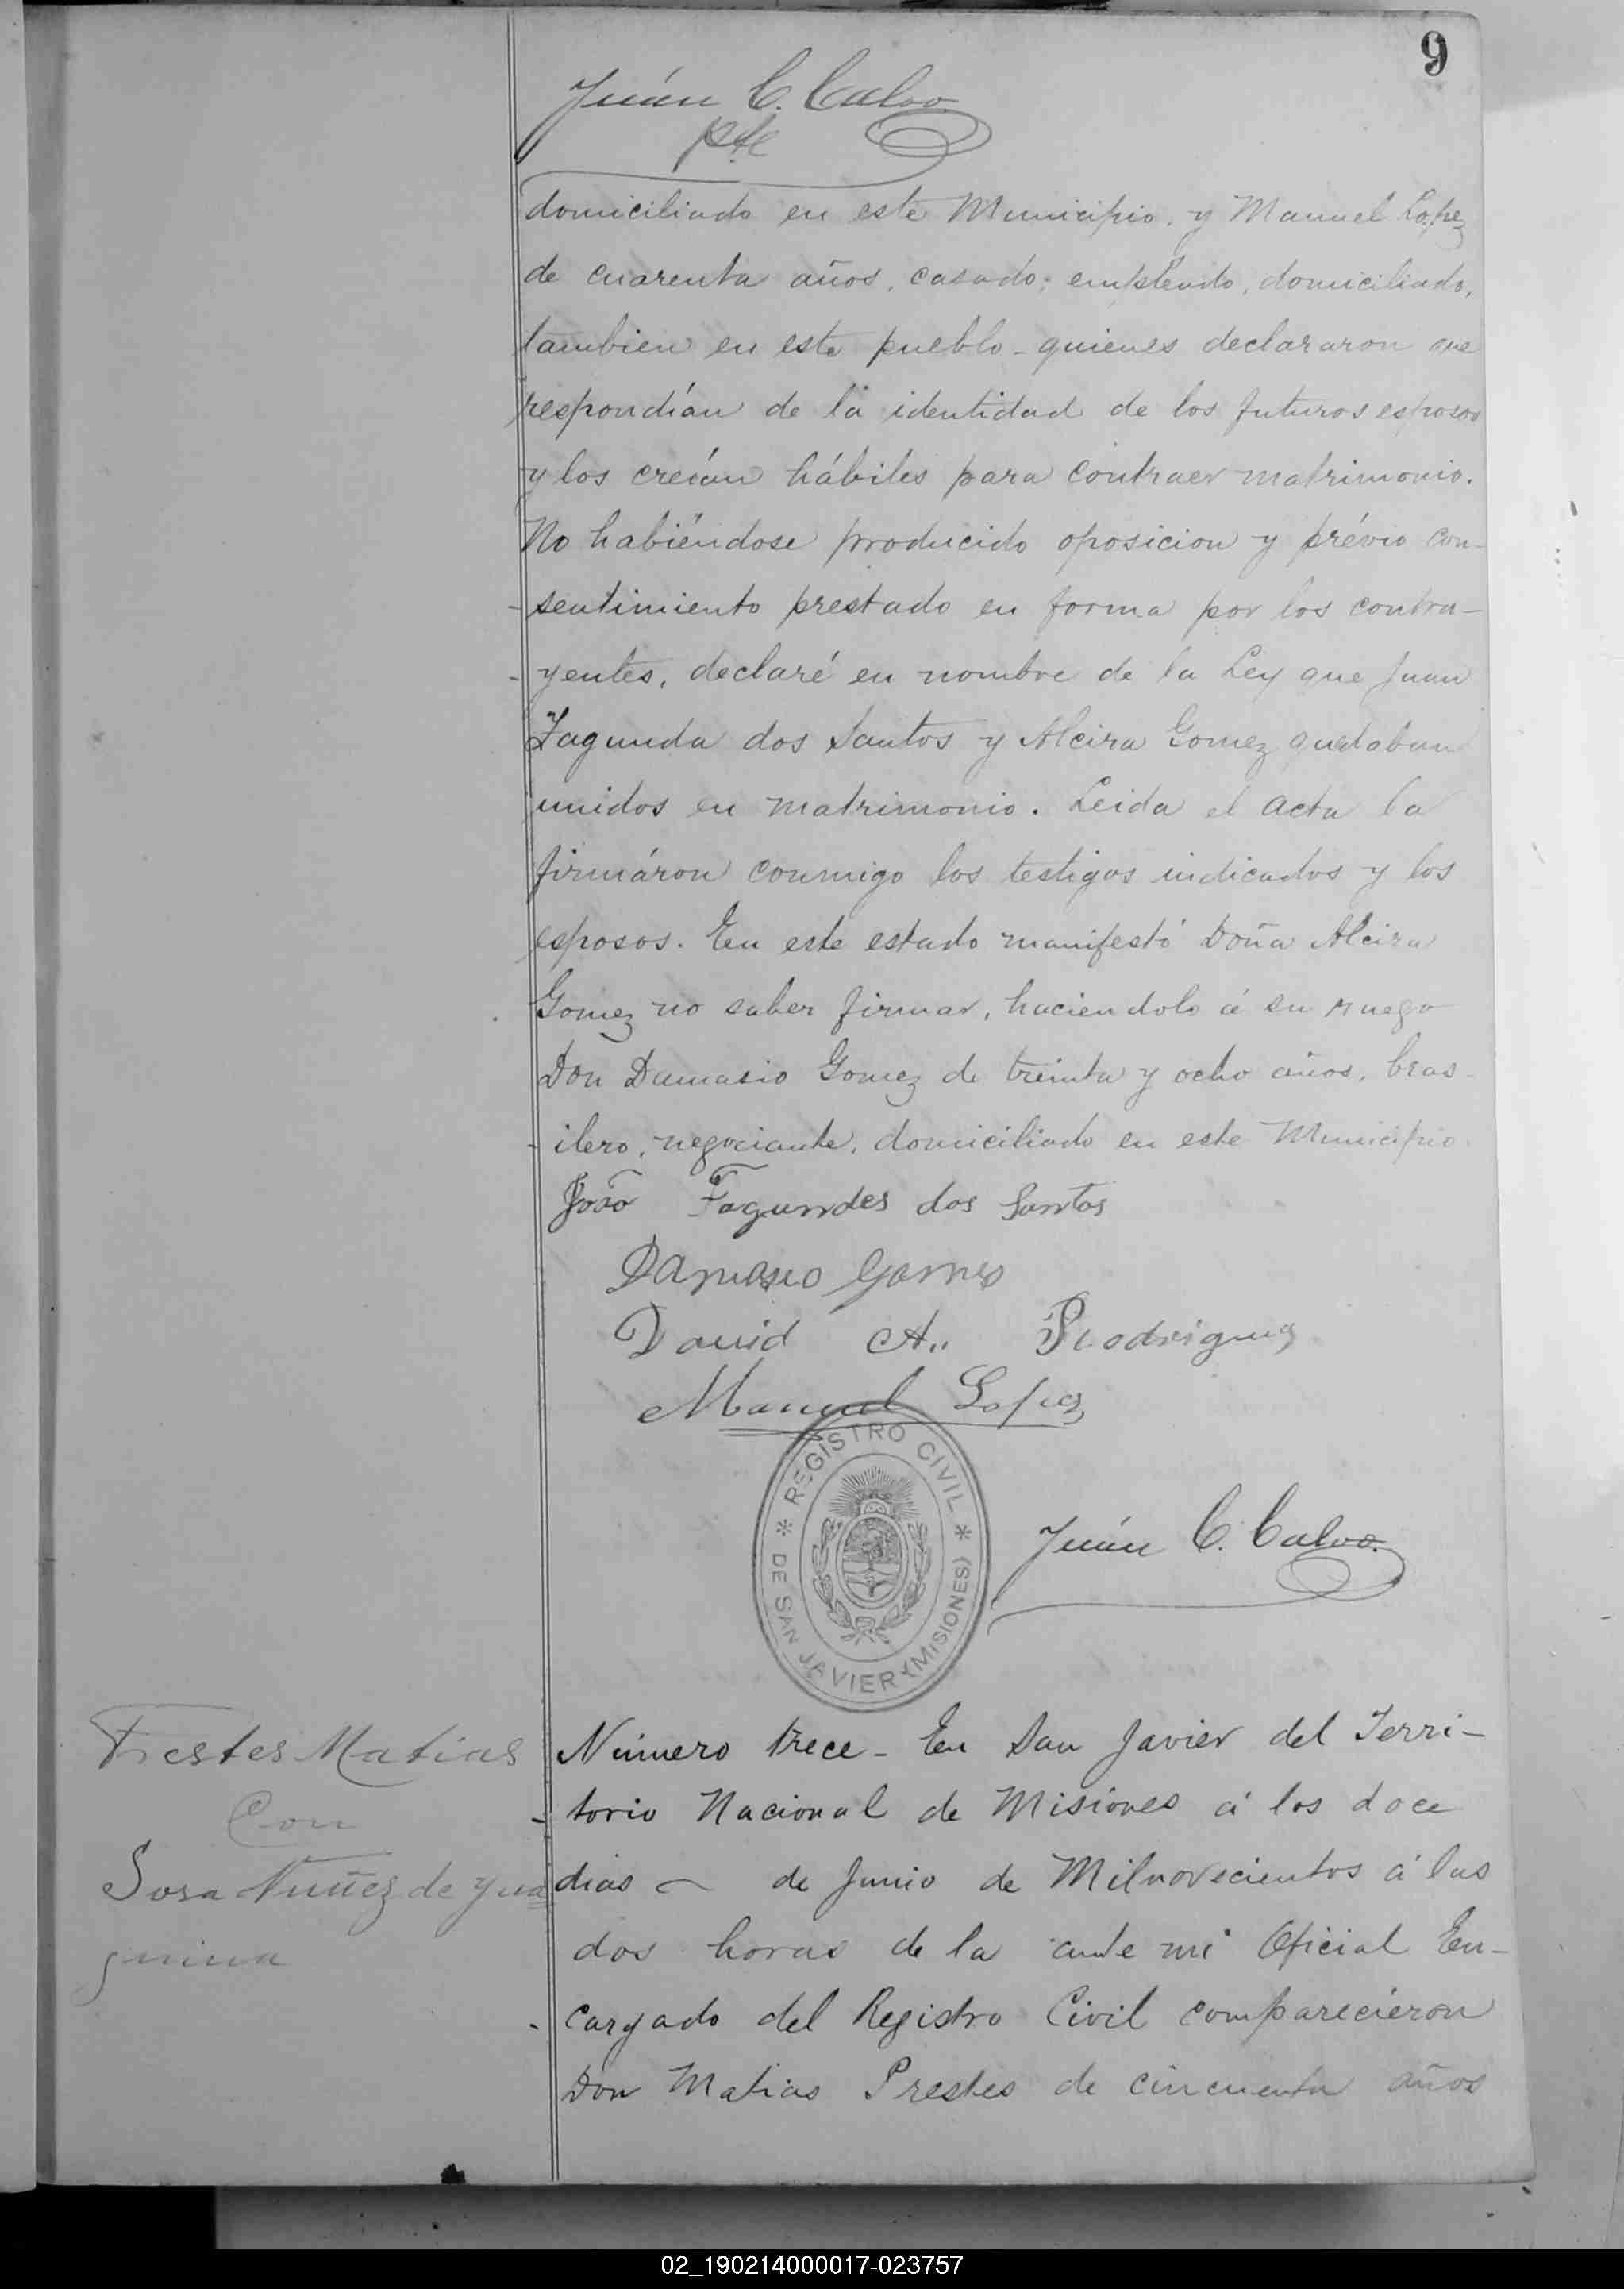 9
Juán C. Calvo
pte
domiciliado en este Municipio, y Manuel Lopez
de cuarenta años, casado, empleado, domiciliado,
tambien en este pueblo - quienes declararon que
respondían de la identidad de los futuros esposos
y los creían hábiles para contraer matrimonio.
No habiéndose producido oposicion y prévio con-
-sentimiento prestado en forma por los contra-
-yentes, declaré en nombre de la Ley que Juan
Fagunda dos Santos y Alcira Gomez quedaban
unidos en matrimonio. Leida el acta la
firmáron conmigo los testigos indicados y los
esposos. En este estado manifestó Doña Alcira
Gomez no saber firmar, haciendolo á su ruego
Don Damasio Gomez de treinta y ocho años, bras-
-ilero, negociante, domiciliado en este Municipio.
João Fagundes dos Santos
Damasio Gomes
David A. Rodrigues
Manuel Lopez
REGISTRO CIVIL
DE SAN JAVIER (MISIONES)
Juán C. Calvo.
Prestes Matias
Con
Sosa Nuñez de Jua
quina
Número trece - En San Javier del Terri-
-torio Nacional de Misiones á los doce
dias de Junio de Milnovecientos á las
dos horas de la ante mi Oficial En-
-cargado del Registro Civil comparecieron
Don Matias Prestes de cincuenta años
02_190214000017-023757